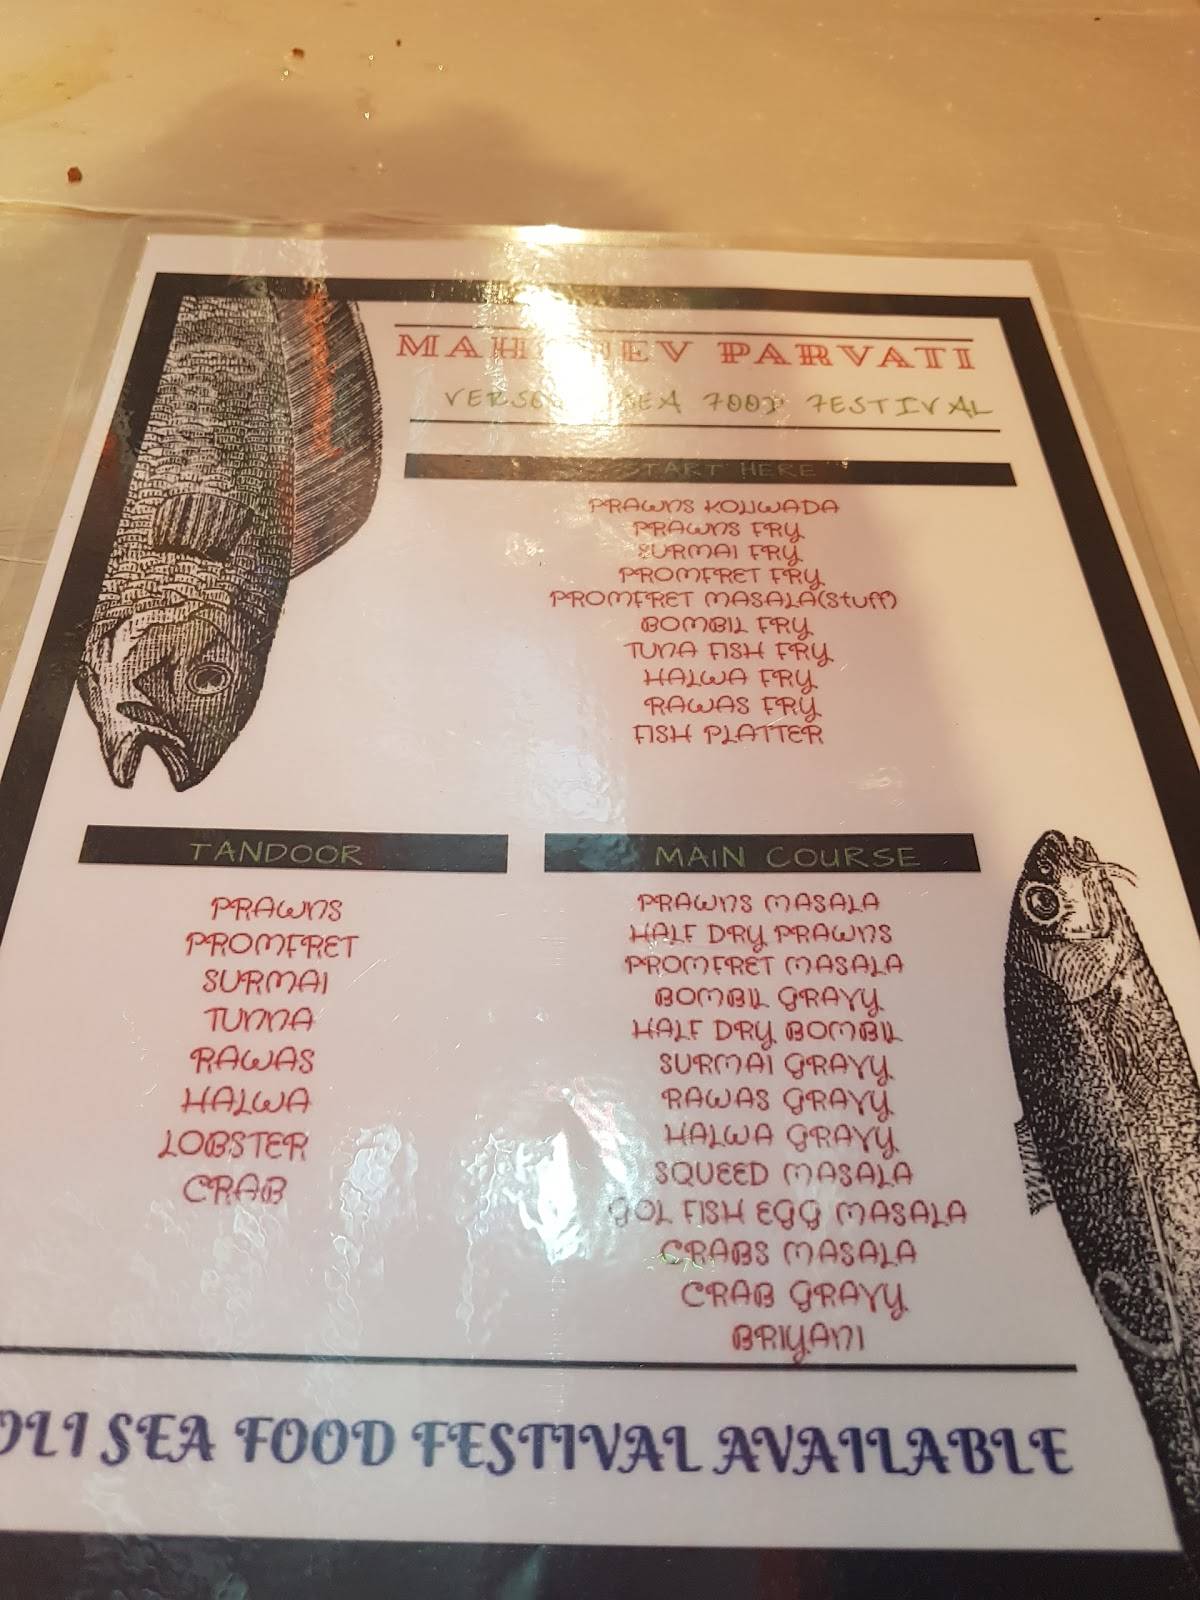 PARVATI
SEA FOOD FESTIVAL
START HERE
PRAWNS KOLIWADA
PRAWNS FRY
SURMAI FRY
PROMFRET FRY
PROMFRET MASALA(Stuff)
BOMBIL FRY
TUNA FISH FRY
HALWA FRY
RAWAS FRY
FISH PLATTER
TANDOOR
PRAWNS
PROMFRET
SURMAI
TUNNA
RAWAS
HALWA
LOBSTER
CRAB
MAIN COURSE
PRAWNS MASALA
HALF DRY PRAWNS
PROMFRET MASALA
BOMBIL GRAVY
HALF DRY BOMBIL
SURMAI GRAVY
RAWAS GRAVY
HALWA GRAVY
SQUEED MASALA
GOL FISH EGG MASALA
CRABS MASALA
CRAB GRAVY
BRIYANI
OLI SEA FOOD FESTIVAL AVAILABLE